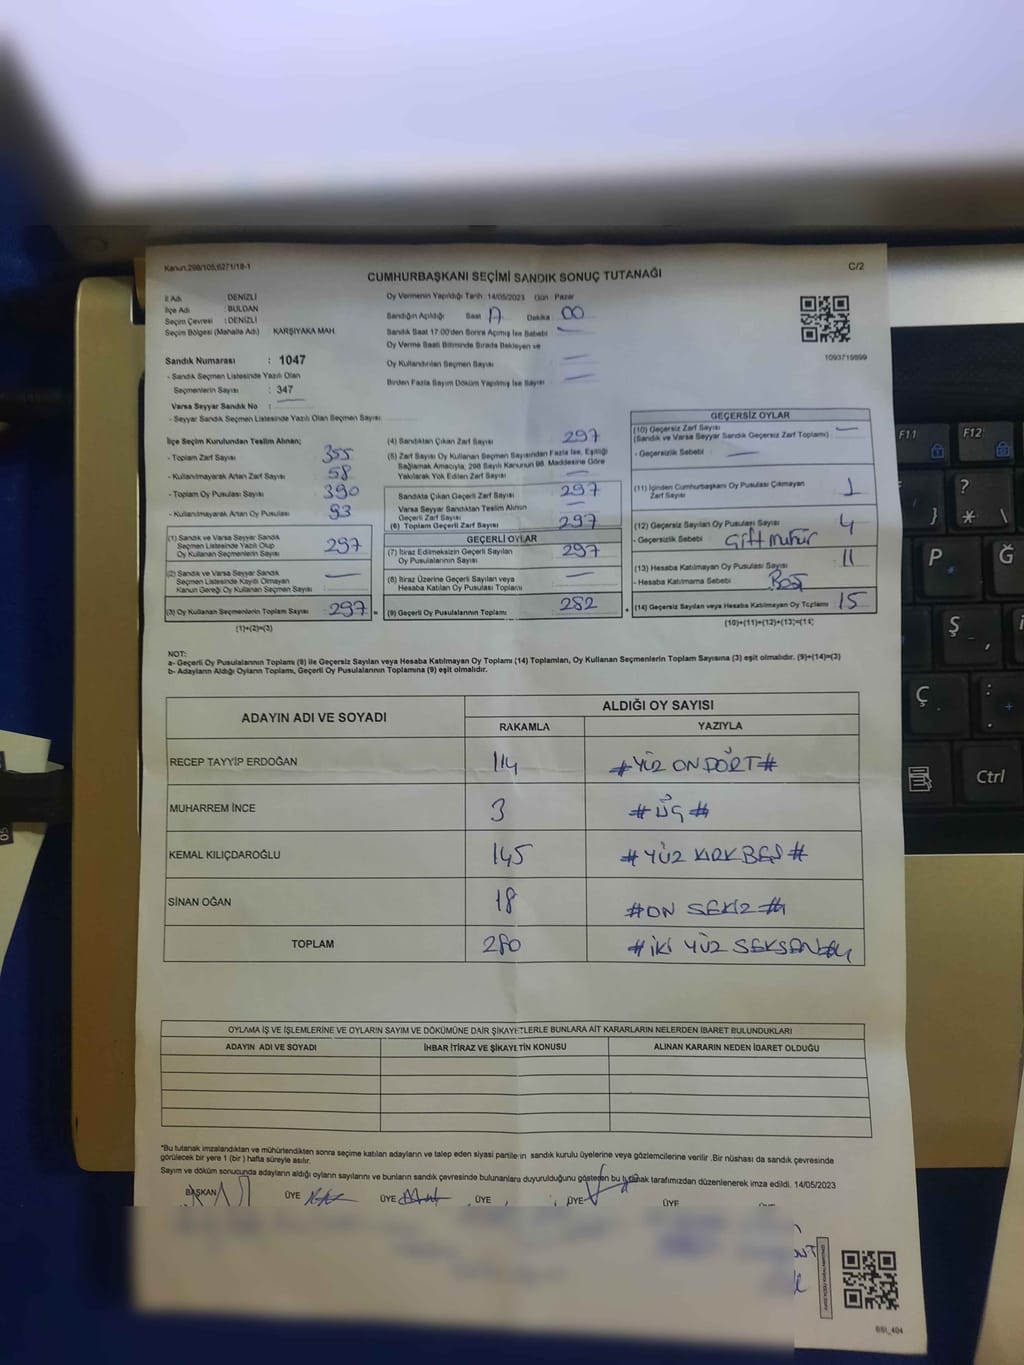 Kanun:298/105;6271/18-1
C/2
CUMHURBAŞKANI SEÇİMİ SANDIK SONUÇ TUTANAĞI
İl Adı : DENİZLİ
İlçe Adı : BULDAN
Seçim Çevresi : DENİZLİ
Seçim Bölgesi (Mahalle Adı) KARŞIYAKA MAH.
Sandık Numarası : 1047
- Sandık Seçmen Listesinde Yazılı Olan
Seçmenlerin Sayısı : 347
Varsa Seyyar Sandık No :
- Seyyar Sandık Seçmen Listesinde Yazılı Olan Seçmen Sayısı
Oy Vermenin Yapıldığı Tarih :14/05/2023 Gün : Pazar
Sandığın Açıldığı Saat 17 Dakika 00
Sandık Saat 17.00'den Sonra Açmış İse Sebebi
Oy Verme Saati Bitiminde Sırada Bekleyen ve
Oy Kullandırılan Seçmen Sayısı
Birden Fazla Sayım Döküm Yapılmış İse Sayısı
1093719899
İlçe Seçim Kurulundan Teslim Alınan;
- Toplam Zarf Sayısı 355
- Kullanılmayarak Artan Zarf Sayısı 58
- Toplam Oy Pusulası Sayısı 390
- Kullanılmayarak Artan Oy Pusulası 93
(1) Sandık ve Varsa Seyyar Sandık
Seçmen Listesinde Yazılı Olup
Oy Kullanan Seçmenlerin Sayısı 297
(2) Sandık ve Varsa Seyyar Sandık
Seçmen Listesinde Kayıtlı Olmayan
Kanun Gereği Oy Kullanan Seçmen Sayısı
(3) Oy Kullanan Seçmenlerin Toplam Sayısı : 297 =
(1)+(2)=(3)
(4) Sandıktan Çıkan Zarf Sayısı 297
(5) Zarf Sayısı Oy Kullanan Seçmen Sayısından Fazla İse, Eşitliği
Sağlamak Amacıyla, 298 Sayılı Kanunun 98. Maddesine Göre
Yakılarak Yok Edilen Zarf Sayısı
Sandıkta Çıkan Geçerli Zarf Sayısı 297
Varsa Seyyar Sandıktan Teslim Alınan
Geçerli Zarf Sayısı
(6) Toplam Geçerli Zarf Sayısı 297
GEÇERLİ OYLAR
(7) İtiraz Edilmeksizin Geçerli Sayılan
Oy Pusulalarının Sayısı 297
(8) İtiraz Üzerine Geçerli Sayılan veya
Hesaba Katılan Oy Pusulası Toplamı
(9) Geçerli Oy Pusulalarının Toplamı 282 +
GEÇERSİZ OYLAR
(10) Geçersiz Zarf Sayısı
(Sandık ve Varsa Seyyar Sandık Geçersiz Zarf Toplamı)
- Geçersizlik Sebebi
(11) İçinden Cumhurbaşkanı Oy Pusulası Çıkmayan
Zarf Sayısı 1
(12) Geçersiz Sayılan Oy Pusulası Sayısı 4
- Geçersizlik Sebebi : Çift mühür
(13) Hesaba Katılmayan Oy Pusulası Sayısı 11
- Hesaba Katılmama Sebebi Boş
(14) Geçersiz Sayılan veya Hesaba Katılmayan Oy Toplamı 15
(10)+(11)+(12)+(13)=(14)
NOT:
a- Geçerli Oy Pusulalarının Toplamı (9) ile Geçersiz Sayılan veya Hesaba Katılmayan Oy Toplamı (14) Toplamları, Oy Kullanan Seçmenlerin Toplam Sayısına (3) eşit olmalıdır. (9)+(14)=(3)
b- Adayların Aldığı Oyların Toplamı, Geçerli Oy Pusulalarının Toplamına (9) eşit olmalıdır.
ADAYIN ADI VE SOYADI
ALDIĞI OY SAYISI
RAKAMLA YAZIYLA
RECEP TAYYİP ERDOĞAN 114 #YÜZ ONDÖRT#
MUHARREM İNCE 3 #ÜÇ#
KEMAL KILIÇDAROĞLU 145 #YÜZ KIRKBEŞ#
SİNAN OĞAN 18 #ON SEKİZ#
TOPLAM 280 #İKİ YÜZ SEKSEN#
OYLAMA İŞ VE İŞLEMLERİNE VE OYLARIN SAYIM VE DÖKÜMÜNE DAİR ŞİKAYETLERLE BUNLARA AİT KARARLARIN NELERDEN İBARET BULUNDUKLARI
ADAYIN ADI VE SOYADI İHBAR İTİRAZ VE ŞİKAYETİN KONUSU ALINAN KARARIN NEDEN İBARET OLDUĞU
*Bu tutanak imzalandıktan ve mühürlendikten sonra seçime katılan adayların ve talep eden siyasi partilerin sandık kurulu üyelerine veya gözlemcilerine verilir .Bir nüshası da sandık çevresinde
görülecek bir yere 1 (bir ) hafta süreyle asılır.
Sayım ve döküm sonucunda adayların aldığı oyların sayılarını ve bunların sandık çevresinde bulunanlara duyurulduğunu gösteren bu tutanak tarafımızdan düzenlenerek imza edildi. 14/05/2023
BAŞKAN ÜYE ÜYE ÜYE ÜYE ÜYE
BSI_404
F11
F12
?
}
*
\
P
Ğ
Ş
Ç
Ctrl